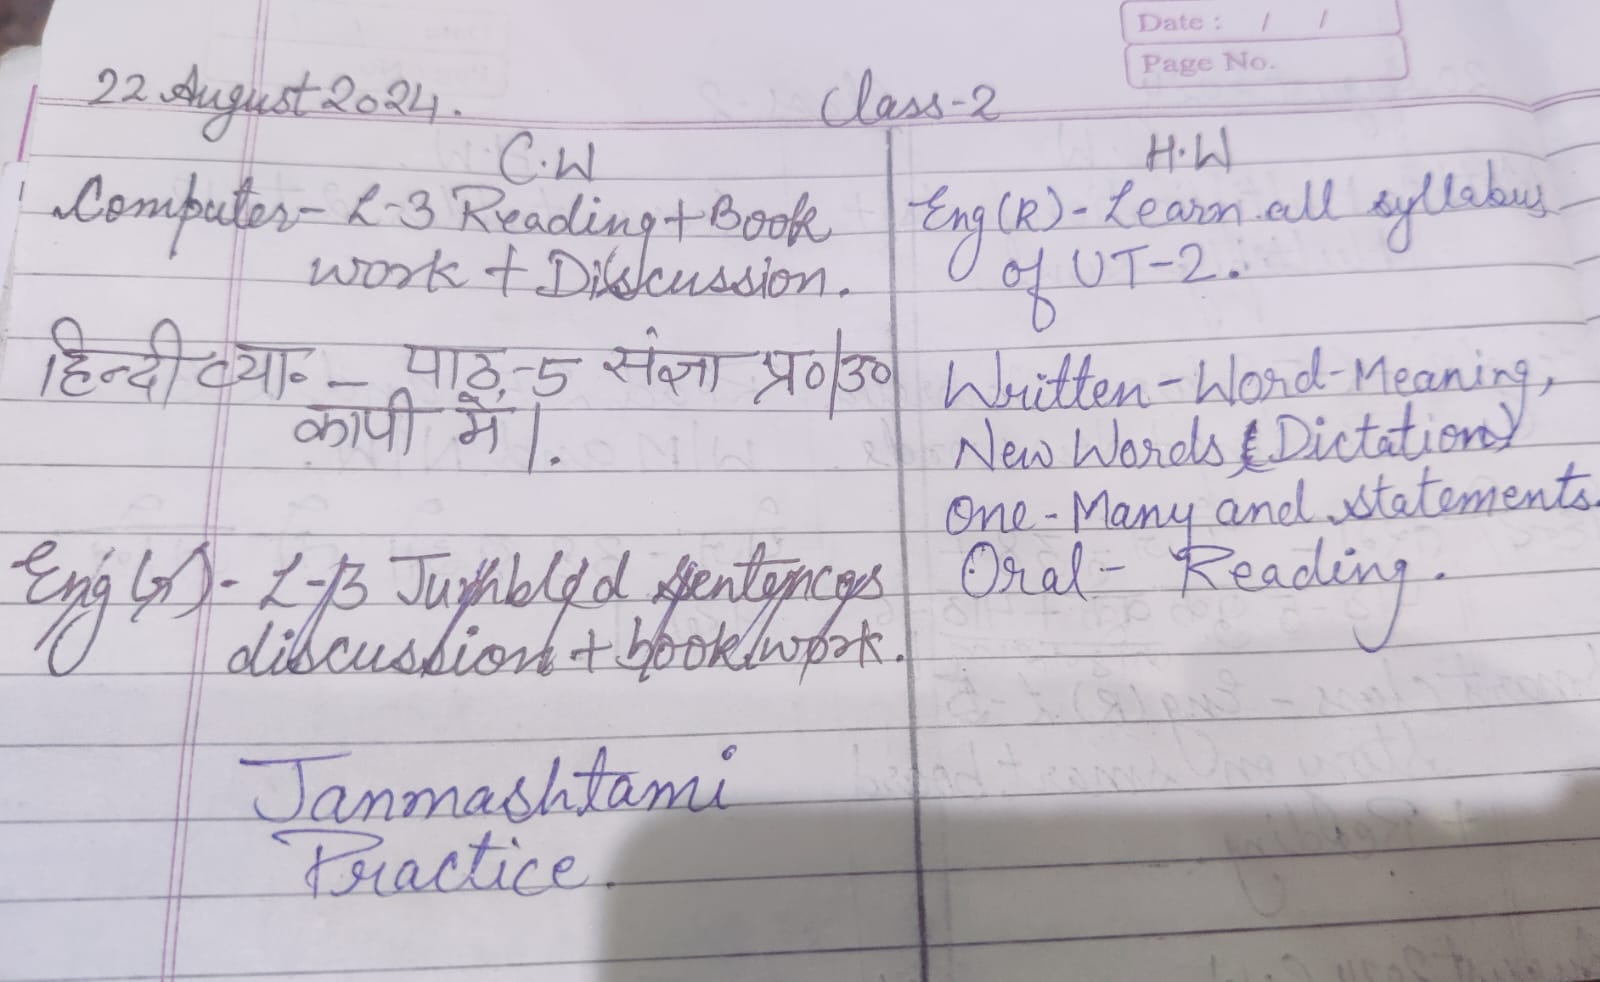 Date : / /
Page No.
22 August 2024.
Class-2
C.W
Computer- L-3 Reading + Book
work + Discussion.
हिन्दी व्या॰ – पाठ-5 संज्ञा प्र०/उ०
कापी में।.
Eng(G)- L-13 Jumbled sentences
discussion + book work.
Janmashtami
Practice.
H.W
Eng(R)- Learn all syllabus
of UT-2.
Written-Word-Meaning,
New Words (Dictation)
One-Many and statements.
Oral- Reading.